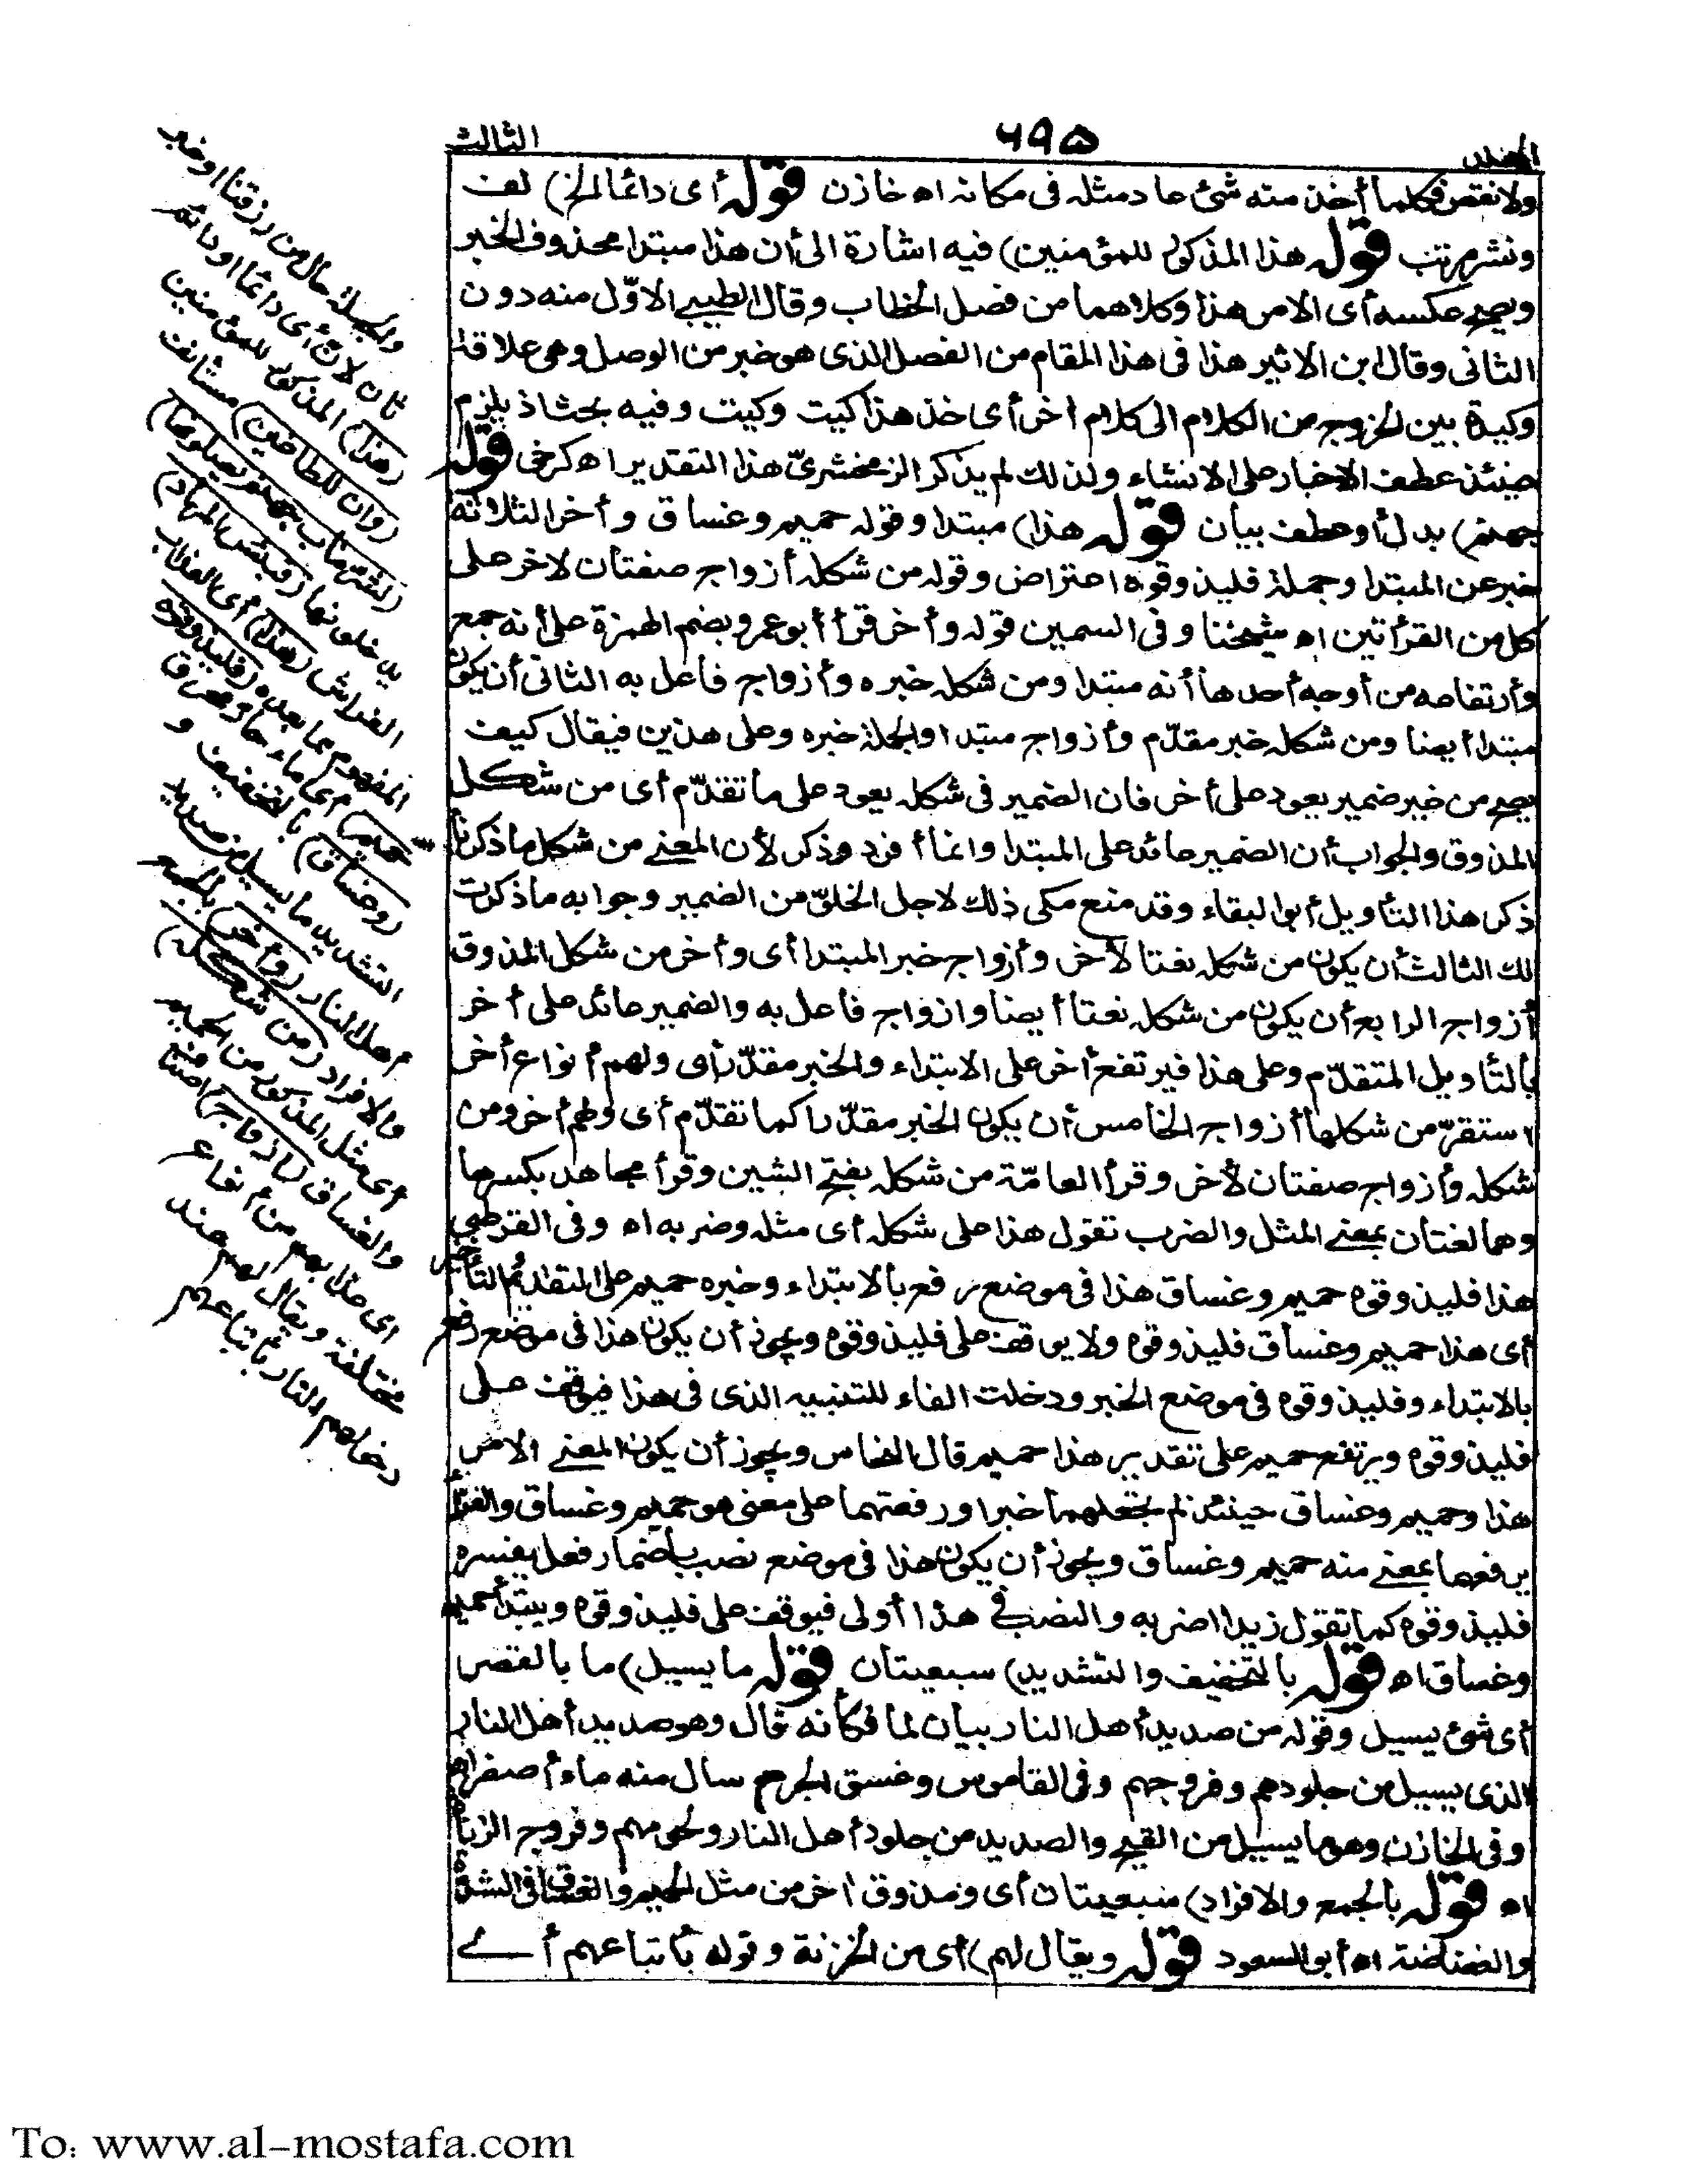 المجلد
٦٩٥
الثالث
ولا نقص فكلما أخذ منه شئ عاد مثله فى مكانه اه خازن قوله أى دائما الخ) لف
ونشر مرتب قوله هذا المذكور للمؤمنين) فيه اشارة الى أن هذا مبتدا محذوف الخبر
ويصح عكسه أى الامر هذا وكلاهما من فصل الخطاب وقال الطيبى الاوّل منه دون
الثانى وقال ابن الاثير هذا فى هذا المقام من الفصل الذى هو خير من الوصل وهى علاقة
وكيدة بين الخروج من الكلام الى كلام أخر أى خذ هذا كيت وكيت وفيه بحث اذ يلزم
حينئذ عطف الاخبار على الانشاء ولذلك لم يذكر الزمخشرىّ هذا التقدير اه كرخى قوله
جهنم) بدل أو عطف بيان قوله هذا) مبتدا وقوله حميم وغساق وأخر الثلاثة
خبر عن المبتدا وجملة فليذوقوه اعتراض وقوله من شكله أزواج صفتان لاخر على
كل من القرأتين اه شيخنا وفى السمين قوله وأخر قرأ أبو عمرو بضم الهمزة على أنه جمع
وارتفاعه من أوجه أحدها أنه مبتدا ومن شكله خبره وأزواج فاعل به الثانى أن يكون
مبتدا أيضا ومن شكله خبر مقدّم وأزواج مبتدا والجملة خبره وعلى هذين فيقال كيف
يصح من خبر ضمير يعود على أخر فان الضمير فى شكله يعود على ما تقدّم أى من شكل
المذوق والجواب أن الضمير عائد على المبتدا وانما أفرد وذكر لأن المعنى من شكل ما ذكرنا
ذكر هذا التأويل أبو البقاء وقد منع مكى ذلك لاجل الخلوّ من الضمير وجوابه ما ذكرت
لك الثالث أن يكون من شكله نعتا لأخر وأزواج خبر المبتدا أى وأخر من شكل المذوق
أزواج الرابع أن يكون من شكله نعتا أيضا وازواج فاعل به والضمير عائد على أخر
بالتأويل المتقدّم وعلى هذا فيرتفع أخر على الابتداء والخبر مقدّر أى ولهم أنواع أخر
استقرّ من شكلها أزواج الخامس أن يكون الخبر مقدّرا كما تقدّم أى ولهم أخر ومن
شكله وأزواج صفتان لأخر وقرأ العامّة من شكله بفتح الشين وقرأ مجاهد بكسرها
وهما لغتان بمعنى المثل والضرب تقول هذا على شكله أى مثله وضربه اه وفى القرطبى
هذا فليذوقوه حميم وغساق هذا فى موضع رفع بالابتداء وخبره حميم على التقديم والتأخير
أى هذا حميم وغساق فليذوقوه ولا يوقف على فليذوقوه ويجوز أن يكون هذا فى موضع رفع
بالابتداء وفليذوقوه فى موضع الخبر ودخلت الفاء للتنبيه الذى فى هذا فيوقف على
فليذوقوه ويرتفع حميم على تقدير هذا حميم قال النحاس ويجوز أن يكون المعنى الامر
هذا وحميم وغساق حينئذ لم تجعلهما خبرا ورفعتهما على معنى هو حميم وغساق والفرّاء
يرفعهما بمعنى منه حميم وغساق ويجوز أن يكون هذا فى موضع نصب باضمار فعل يفسره
فليذوقوه كما تقول زيدا اضربه والنصب فى هذا أولى فيوقف على فليذوقوه ويبتدأ حميم
وغساق اه قوله بالتخفيف والتشديد) سبعيتان قوله ما يسيل) ما بالقصر
أى شئ يسيل وقوله من صديد أهل النار بيان لما فكأنه قال وهو صديد أهل النار
الذى يسيل من جلودهم وفروجهم وفى القاموس وغسق الجرح سال منه ماء أصفر اه
وفى الخازن وهو ما يسيل من القيح والصديد من جلود أهل النار ولحومهم وفروج الزناة
اه قوله بالجمع والافراد) سبعيتان أى ومذوق اخر من مثل الحميم والغساق فى الشدة
والفظاظة اه أبو السعود قوله ويقال لهم) أى من الخزنة وقوله بأتباعهم أى
والجملة حال من رزقنا او خبر
ثان لانّ أى دائما او دائم
(هذا) المذكور للمؤمنين
(وان للطاغين) مستأنف
(لشر مآب جهنم يصلونها)
يدخلونها (فبئس المهاد)
الفراش (هذا) أى العذاب
المفهوم مما بعده (فليذوقوه
حميم) أى ماء حار محرق
(وغساق) بالتخفيف و
التشديد ما يسيل من صديد
أهل النار (وأخر) بالجمع
والافراد (من شكله)
أى مثل المذكور من الحميم
والغساق (أزواج) اصناف
اى عذابهم من أنواع
مختلفة ويقال لهم عند
دخولهم النار بأتباعهم
To: www.al-mostafa.com